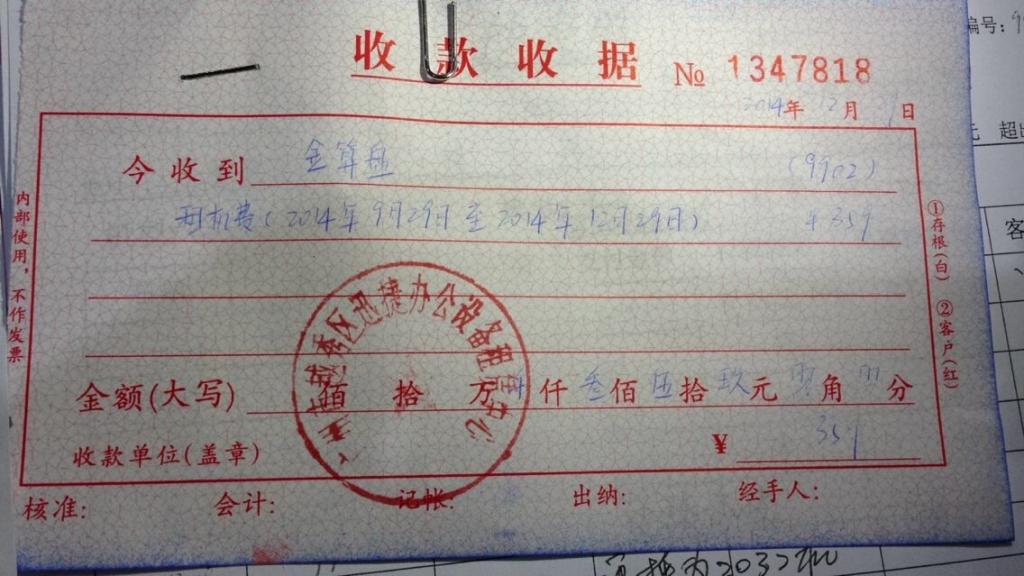 收款收据 № 1347818
2014年12月 日
今收到 金算盘 (9902)
用机费(2014年9月29日至2014年12月29日) ¥359
金额(大写) 佰 拾 万 仟叁佰伍拾玖元 角 分
收款单位(盖章) ¥ 359
核准: 会计: 记帐: 出纳: 经手人:
内部使用,不作发票
①存根(白) ②客户(红)
越秀区迅捷办公设备租赁中心
编号:9
元 超
客